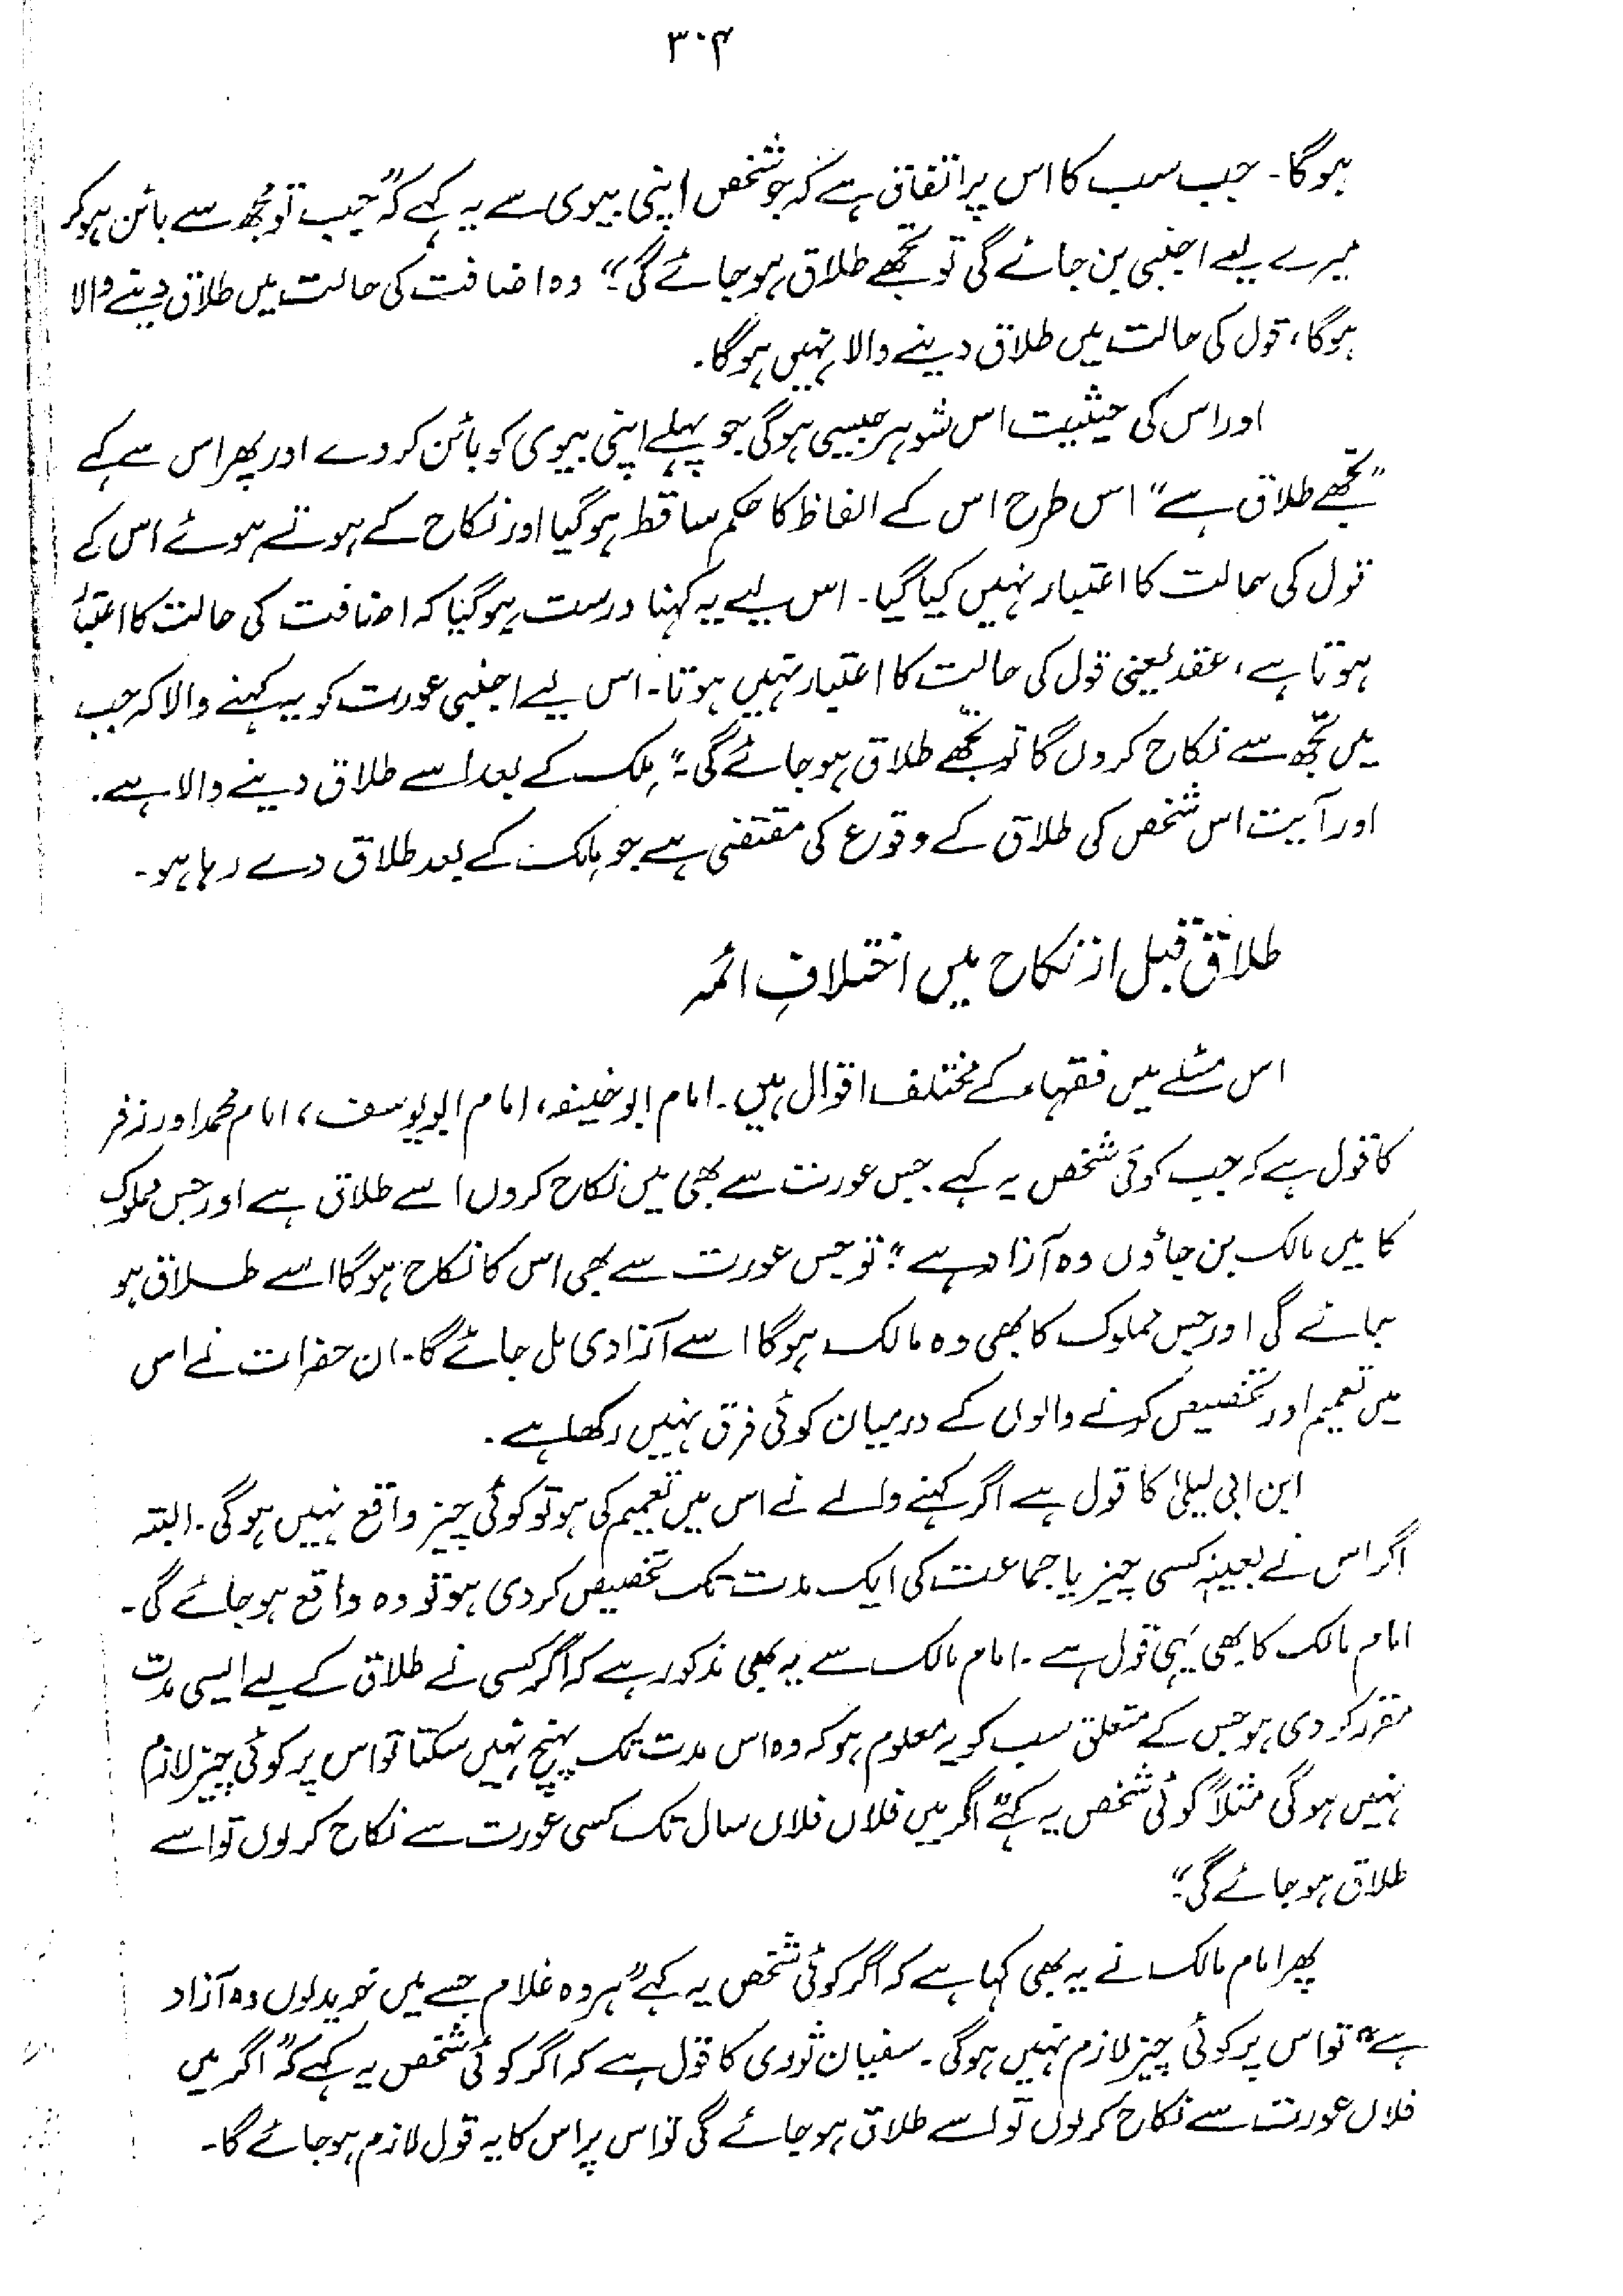 ۳۰۴
ہوگا۔ جب سب کا اس پر اتفاق ہے کہ جو شخص اپنی بیوی سے یہ کہے کہ "جب تو مجھ سے بائن ہو کر
میرے لیے اجنبی بن جائے گی تو تجھے طلاق ہو جائے گی" وہ اضافت کی حالت میں طلاق دینے والا
ہوگا، قول کی حالت میں طلاق دینے والا نہیں ہوگا۔
اور اس کی حیثیت اس شوہر جیسی ہوگی جو پہلے اپنی بیوی کو بائن کر دے اور پھر اس سے کہے
"تجھے طلاق ہے" اس طرح اس کے الفاظ کا حکم ساقط ہو گیا اور نکاح کے ہوتے ہوئے اس کے
قول کی حالت کا اعتبار نہیں کیا گیا۔ اس لیے یہ کہنا درست ہو گیا کہ اضافت کی حالت کا اعتبار
ہوتا ہے، عقد یعنی قول کی حالت کا اعتبار نہیں ہوتا۔ اس لیے اجنبی عورت کو یہ کہنے والا کہ جب
میں تجھ سے نکاح کروں گا تو تجھے طلاق ہو جائے گی۔" مِلک کے بعد اسے طلاق دینے والا ہے۔
اور آیت اس شخص کی طلاق کے وقوع کی مقتضی ہے جو مِلک کے بعد طلاق دے رہا ہو۔
طلاق قبل از نکاح میں اختلافِ ائمہ
اس مسئلے میں فقہاء کے مختلف اقوال ہیں۔ امام ابو حنیفہ، امام ابو یوسف، امام محمد اور زفر
کا قول ہے کہ جب کوئی شخص یہ کہے۔ جس عورت سے بھی میں نکاح کروں اسے طلاق ہے اور جس مملوک
کا میں مالک بن جاؤں وہ آزاد ہے" تو جس عورت سے بھی اس کا نکاح ہوگا اسے طلاق ہو
جائے گی اور جس مملوک کا بھی وہ مالک ہوگا اسے آزادی مل جائے گا۔ ان حضرات نے اس
میں تعمیم اور تخصیص کرنے والوں کے درمیان کوئی فرق نہیں رکھا ہے۔
ابن ابی لیلیٰ کا قول ہے اگر کہنے والے نے اس میں تعمیم کی ہو تو کوئی چیز واقع نہیں ہوگی۔ البتہ
اگر اس نے بعینہٖ کسی چیز یا جماعت کی ایک مدت تک تخصیص کر دی ہو تو وہ واقع ہو جائے گی۔
امام مالک کا بھی یہی قول ہے۔ امام مالک سے یہ بھی مذکور ہے کہ اگر کسی نے طلاق کے لیے ایسی مدت
مقرر کر دی ہو جس کے متعلق سب کو یہ معلوم ہو کہ وہ اس مدت تک پہنچ نہیں سکتا تو اس پر کوئی چیز لازم
نہیں ہوگی مثلاً کوئی شخص یہ کہے "اگر میں فلاں فلاں سال تک کسی عورت سے نکاح کر لوں تو اسے
طلاق ہو جائے گی"
پھر امام مالک نے یہ بھی کہا ہے کہ اگر کوئی شخص یہ کہے "ہر وہ غلام جسے میں خرید لوں وہ آزاد
ہے" تو اس پر کوئی چیز لازم نہیں ہوگی۔ سفیان ثوری کا قول ہے کہ اگر کوئی شخص یہ کہے کہ "اگر میں
فلاں عورت سے نکاح کر لوں تو اسے طلاق ہو جائے گی تو اس پر اس کا یہ قول لازم ہو جائے گا۔